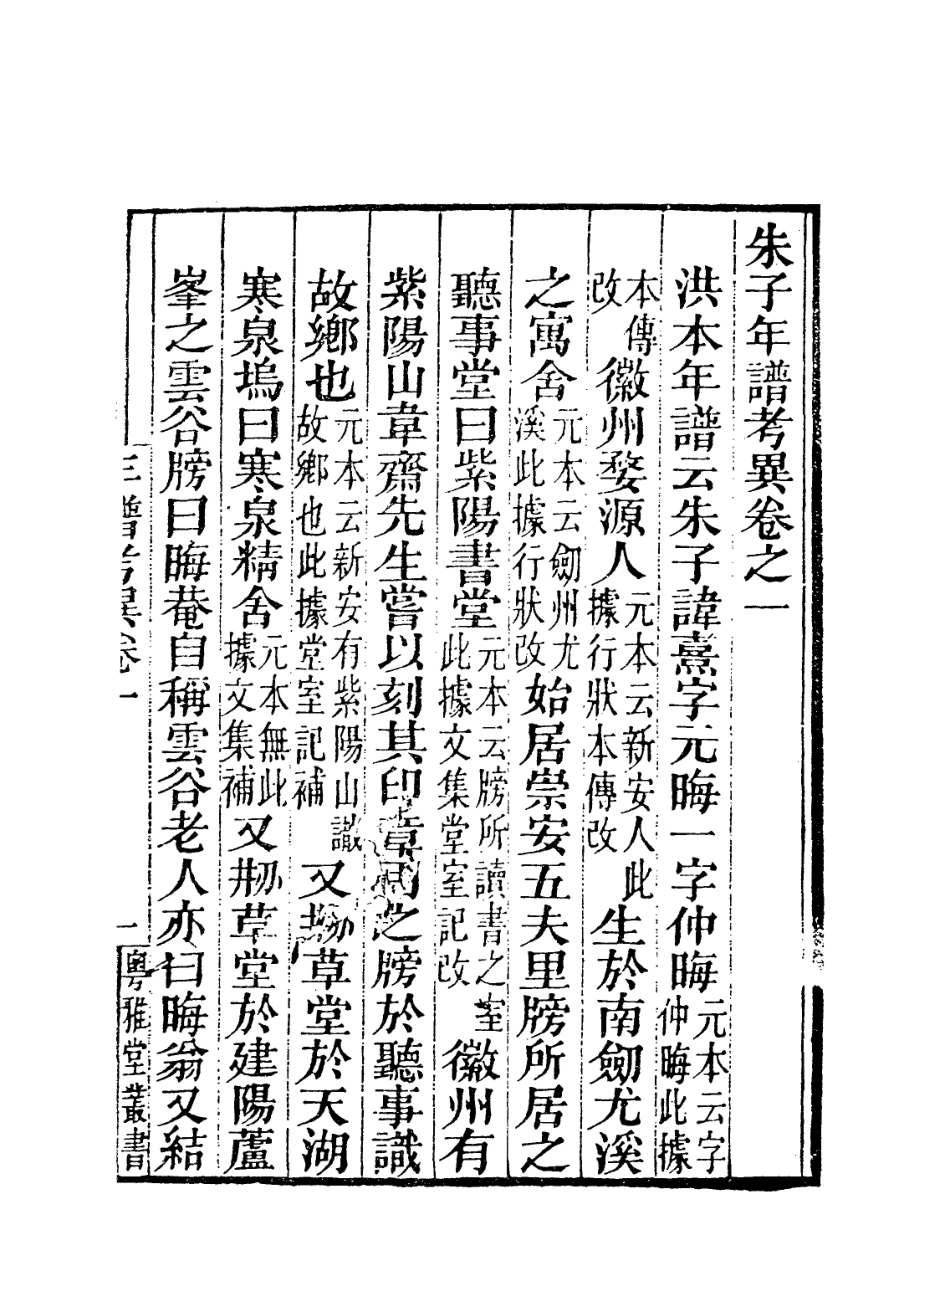 朱子年譜考異卷之一
洪本年譜云朱子諱熹字元晦一字仲晦元本云字仲晦此據
本傳改徽州婺源人元本云新安人此據行狀本傳改生於南劒尤溪
之寓舍元本云劒州尤溪此據行狀改始居崇安五夫里牓所居之
聽事堂曰紫陽書堂元本云牓所讀書之室此據文集堂室記改徽州有
紫陽山韋齋先生嘗以刻其印章之牓於聽事識
故鄉也元本云新安有紫陽山識故鄉也此據堂室記補又剏草堂於天湖
寒泉塢曰寒泉精舍元本無此據文集補又剏草堂於建陽蘆
峯之雲谷牓曰晦菴自稱雲谷老人亦曰晦翁又結
譜考異卷一
一
粵雅堂叢書